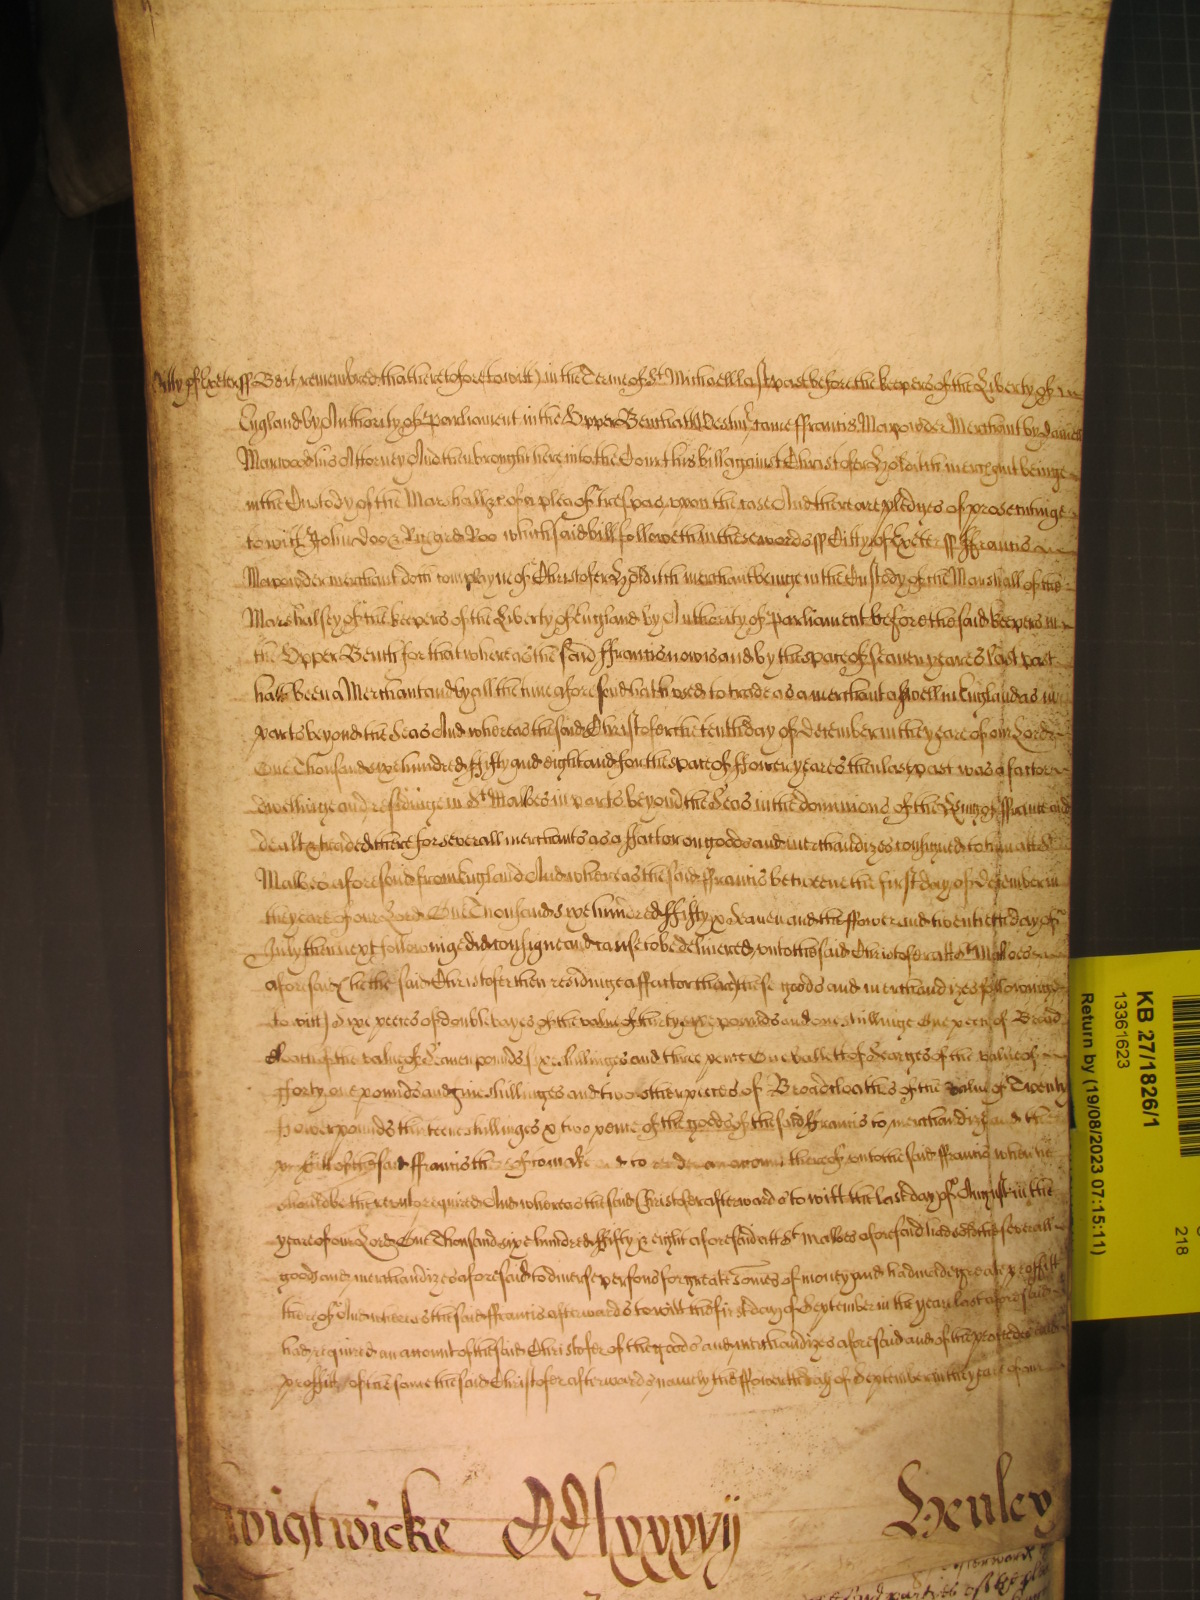 Citty of Exeter ss Be it remembred that heretofore to witt in the Terme of St Michaell last past before the keepers of the Liberty of
England by Authority of Parliament in the Upper Bench att Westmr came ffrancis Mapowder Merchant by
Marwood his Attorney And then brought here into the Court his bill against Christofer Holditch merchant beinge
in the Custody of the Marshall &c of a plea of trespas upon the case And there are pledges of prosecutinge
to witt John Doo & Richard Roo which said bill followeth in these words ss Citty of Exeter ss ffrancis
Mapowder merchant doth complayne of Christofer Holditch merchant beinge in the Custody of the Marshall of the
Marshalsey of the keepers of the Liberty of England by Authority of Parliament before the said keepers in
the Upper Bench for that whereas the said ffrancis now is and by the space of seaven yeares last past
hath been a Merchant and by all the time aforesaid hath used to trade as a merchant aswell in England as in
parts beyond the Seas And whereas the said Christofer the tenth day of December in the yeare of our Lord
One Thousand sixe hundred ffifty and eight and for the space of ffower yeares then last past was a factor
dwellinge and residinge in St Malloes in parts beyond the Seas in the dominions of the Kinge of ffrance and
dealt & traded there for severall merchants as a ffactor on goods and merchandizes consigned to him att St
Malloes aforesaid from England And whereas the said ffrancis betweene the first day of December in
the yeare of our Lord One Thousand sixe hundred ffifty & seaven and the ffower and twentieth day of
July then next followinge did consigne and cause to be delivered unto the said Christofer att St Malloes
aforesaid he the said Christofer then residinge a ffactor there these goods and merchandizes followinge
to witt sixe peeces of double bayes of the value of thirty pounds and one shillinge One peece of Broad
cloath of the value of seaven pounds sixe shillinges and three pence One ballett of Searges of the value of
fforty one pounds and five shillinges and two other pieces of Broadcloathes of the value of Twenty
ffower pounds thirteene shillinges & two pence of the goods of the said ffrancis to merchandize and the
of the said ffrancis thereof to make and to render an accompt thereof unto the said ffrancis when he
should be thereunto required And whereas the said Christofer afterwards to witt the last day of August in the
yeare of our Lord One Thousand sixe hundred ffifty & eight aforesaid att St Malloes aforesaid had sold the severall
goods and merchandizes aforesaid to diverse persons for greate somes of money and had made greate proffitt
thereof And whereas the said ffrancis afterwards to witt the first day of September in the yeare last aforesaid
had required an accompt of the said Christofer of the goods and merchandizes aforesaid and of the
proffitt of the same the said Christofer afterwards namely the ffowerth day of September in the yeare of our
Wightwicke
Henley
KB 27/1826/1
13361623
Return by (19/08/2023 07:15:11)
218